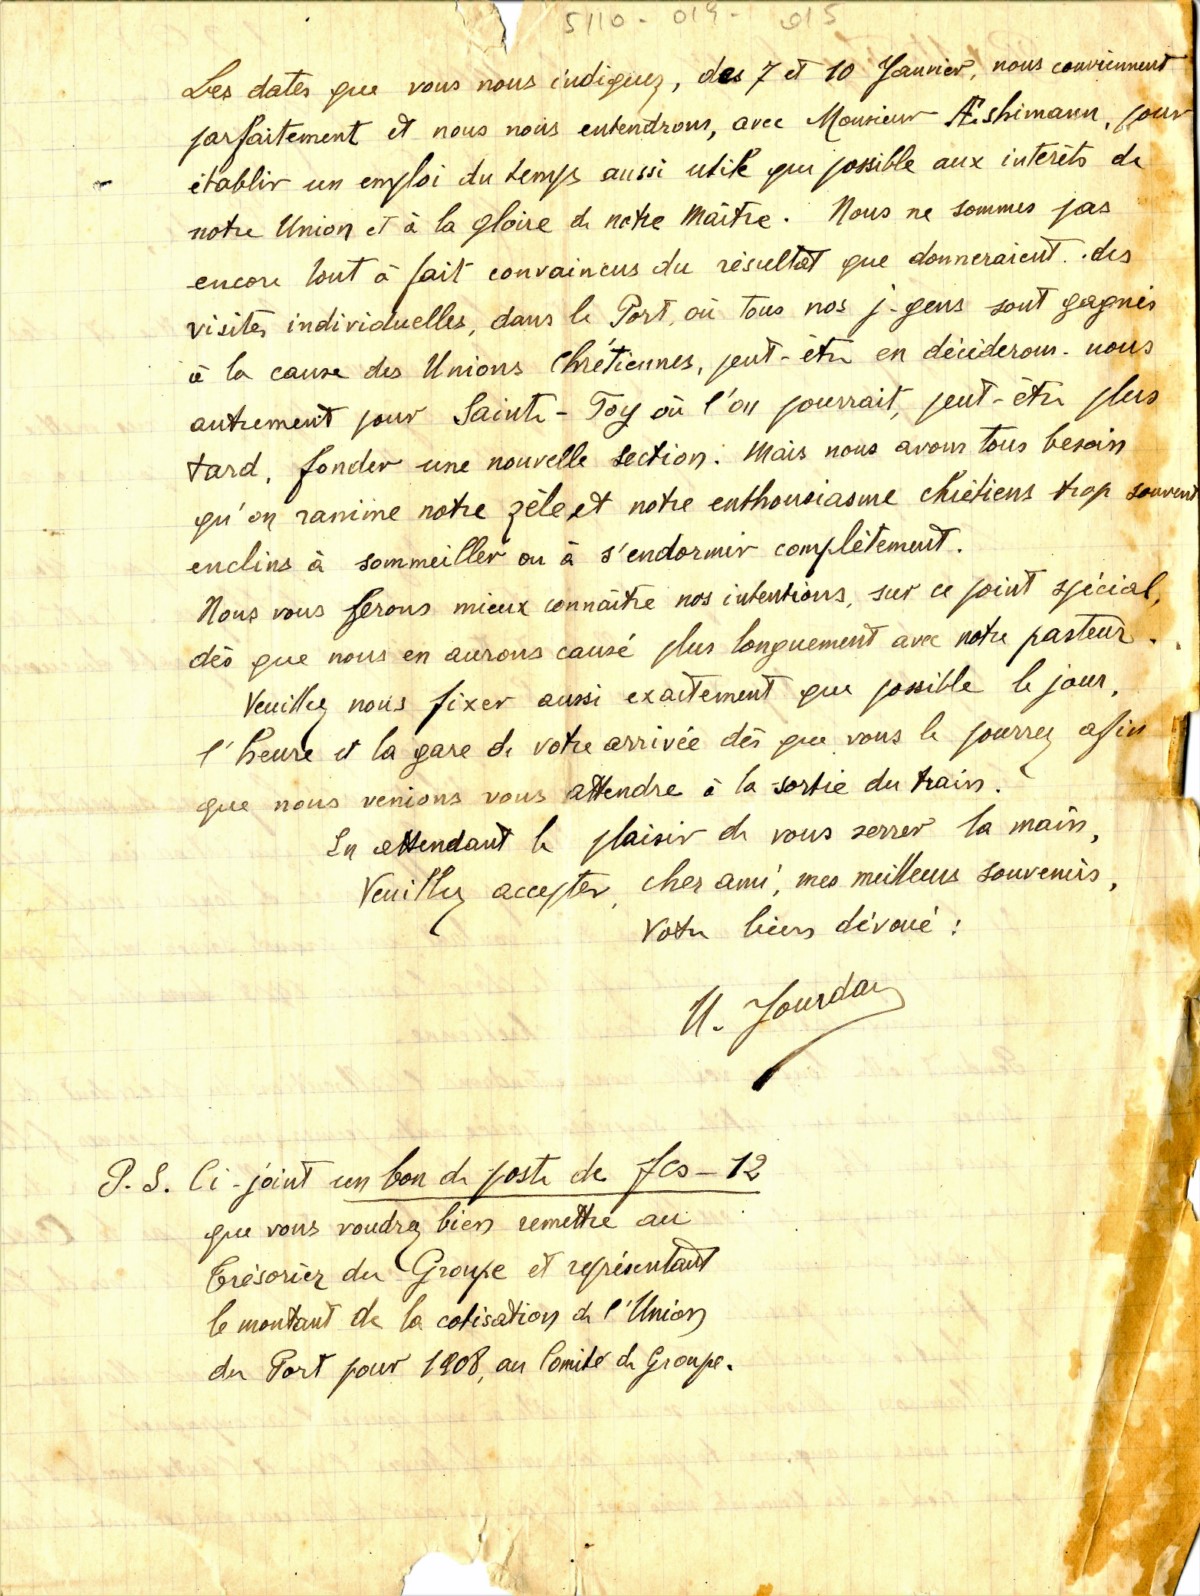 5110-014-015
Les dates que vous nous indiquez, des 7 et 10 Janvier, nous conviennent
parfaitement et nous nous entendrons, avec Monsieur Æshimann, pour
établir un emploi du temps aussi utile que possible aux intérêts de
notre Union et à la gloire de notre Maître. Nous ne sommes pas
encore tout à fait convaincus du résultat que donneraient des
visites individuelles, dans le Port, où tous nos j-gens sont gagnés
à la cause des Unions Chrétiennes, peut-être en déciderons-nous
autrement pour Sainte-Foy où l'on pourrait, peut-être plus
tard, fonder une nouvelle section. Mais nous avons tous besoin
qu'on ranime notre zèle et notre enthousiasme chrétiens trop souvent
enclins à sommeiller ou à s'endormir complètement.
Nous vous ferons mieux connaître nos intentions, sur ce point spécial,
dès que nous en aurons causé plus longuement avec notre pasteur.
Veuillez nous fixer aussi exactement que possible le jour,
l'heure et la gare de votre arrivée dès que vous le pourrez afin
que nous venions vous attendre à la sortie du train.
En attendant le plaisir de vous serrer la main,
Veuillez accepter, cher ami, mes meilleurs souvenirs,
Votre bien dévoué :
H. Jourdan
P.S. Ci-joint un bon de poste de fcs-12
que vous voudrez bien remettre au
trésorier du Groupe et représentant
le montant de la cotisation de l'Union
du Port pour 1908, au Comité de Groupe.